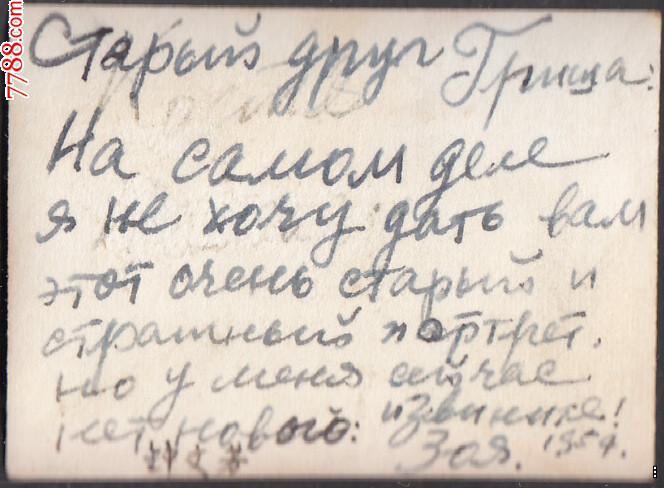 7788.com
Старый друг Гриша:
На самом деле
я не хочу дать вам
этот очень старый и
страшный портрет.
но у меня сичас
нет нового: извините!
Зоя. 1954.